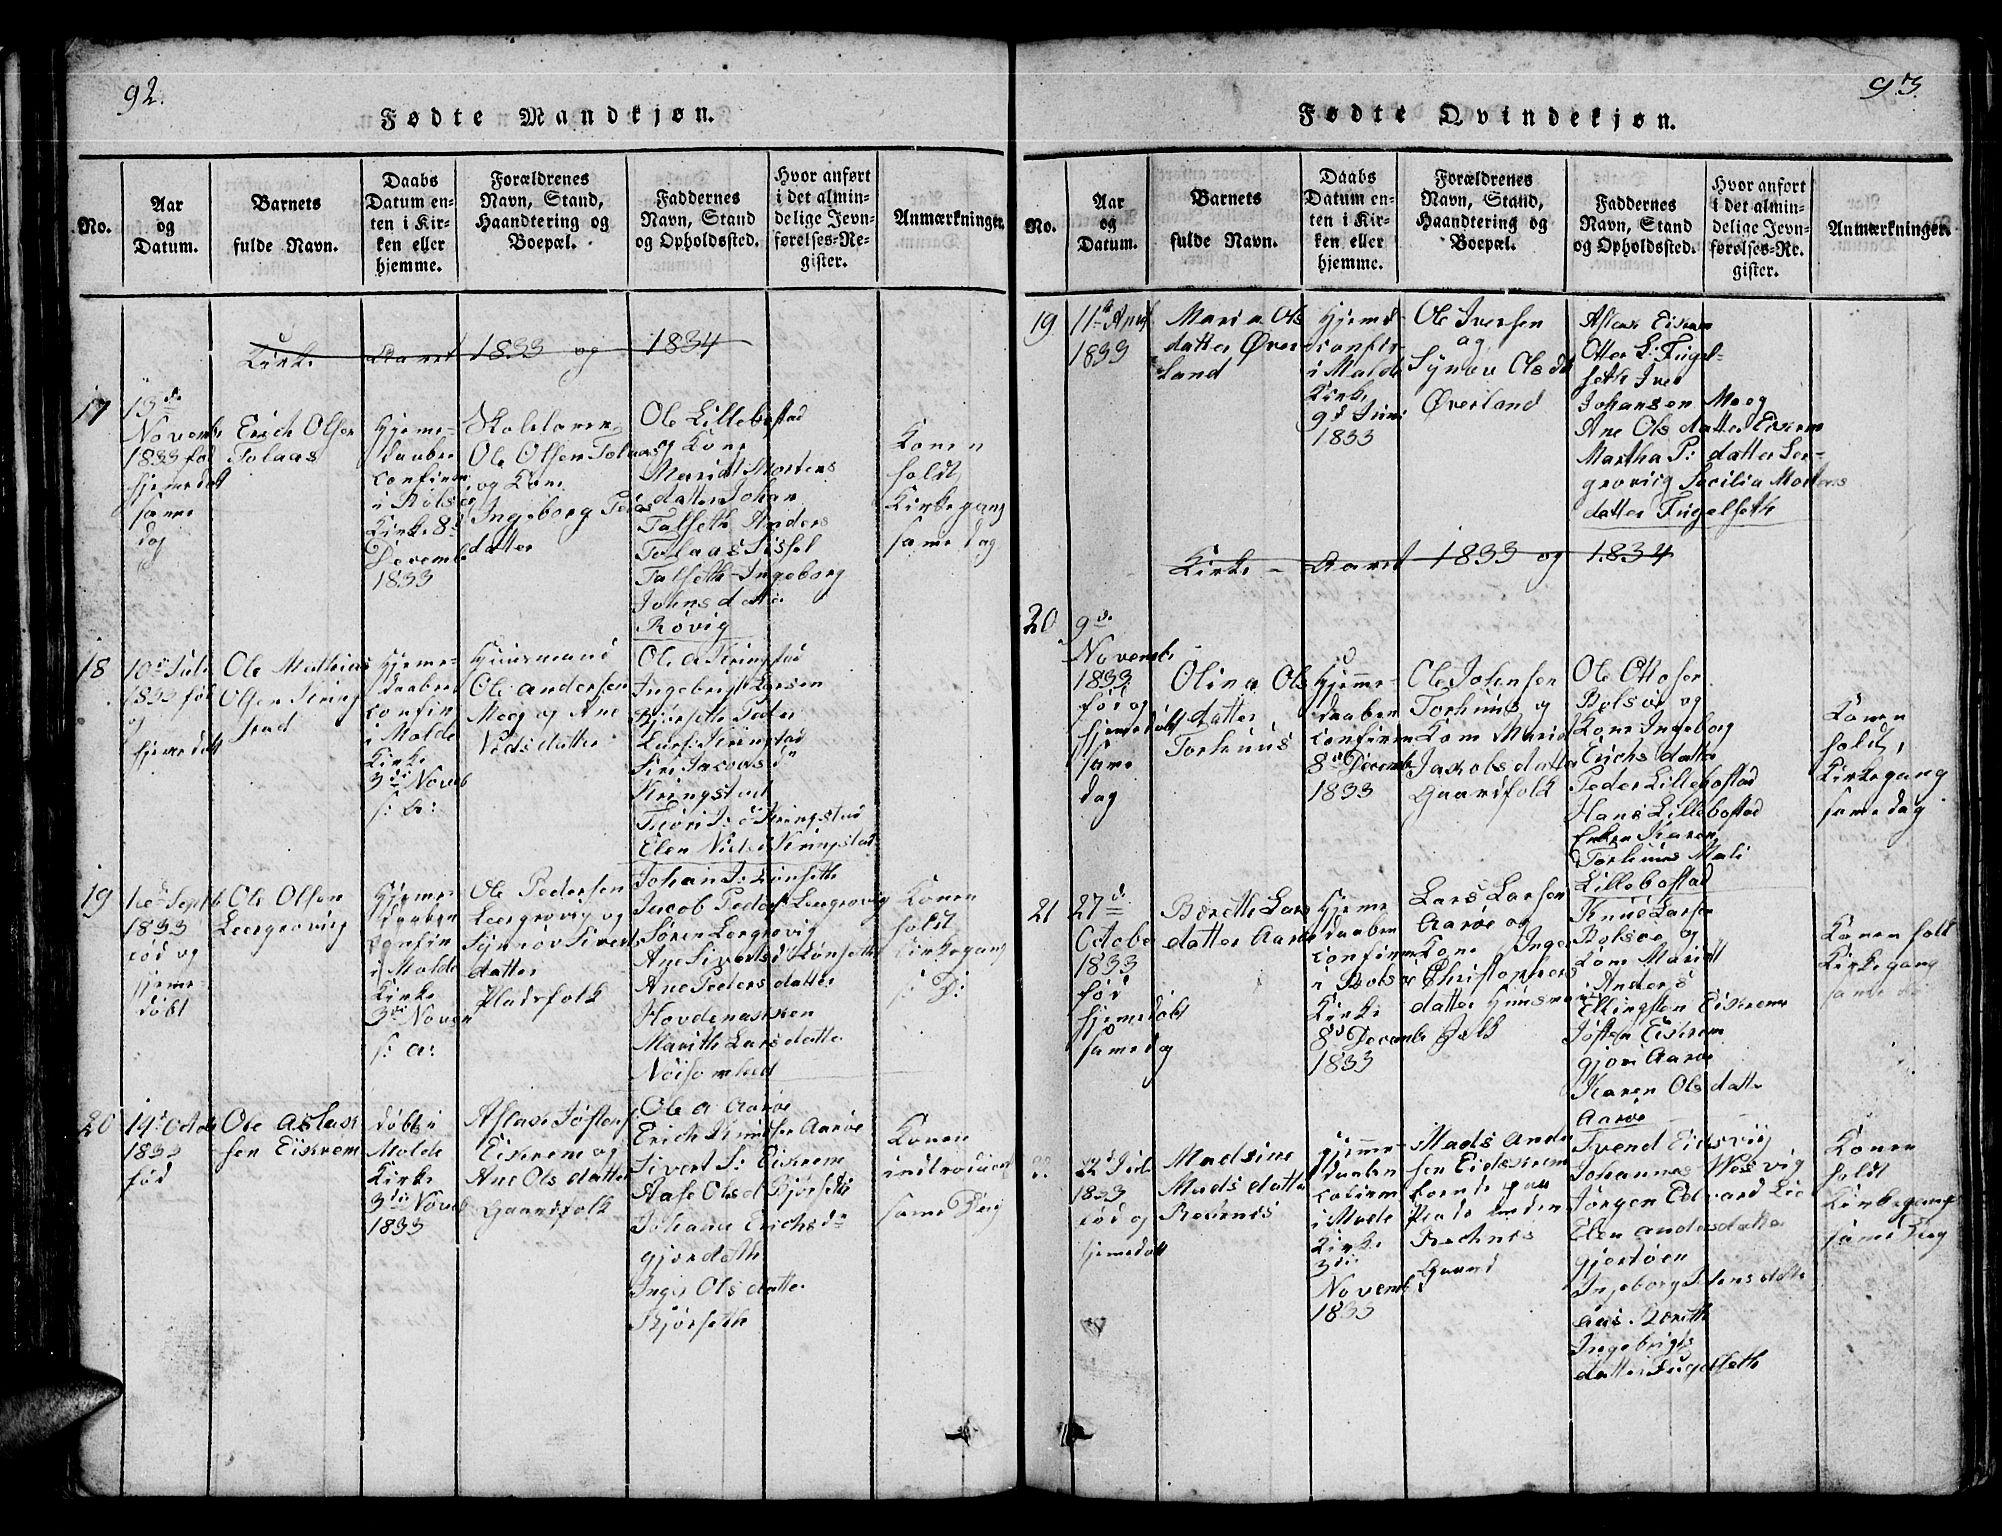 92.
Fødte Mandkjøn.
No.
Aar
og
Datum.
Barnets
fulde Navn.
Daabs
Datum en-
ten i Kir-
ken eller
hjemme.
Forældrenes
Navn, Stand,
Haandtering og
Boepæl.
Faddernes
Navn, Stand
og Opholdssted.
Hvor anført
i det almin-
delige Jevn-
førelses-Re-
gister.
Anmærkninger.
Kirke Aaret 1833 og 1834
17
Novemb
1833 fød
hjemedøbt
samme
dag
Erich Olsen
Tolaas
Hjeme-
daaben
confirm
i Bolsø
Kirke 8d
Decemb
1833
Ole Olsen Tolaas
og Kone
Ingeborg Peders
datter
Ole Lillebostad
og Kone
Marith Mortens
datter Johan
Talseth Anders
Tolaas Sissel
Talseth Ingeborg
Johnsdatter
Røvig
Konen
holdt
Kirkegang
same dag
18
10d Juli
1833 fød
og
hjemedøbt
Ole Mathias
Olsen Kring
stad
Hjeme-
daaben
confirm
i Molde
Kirke
3di Noveb
s: a:
Huusmand
Ole Andersen
Moeg og Ane
Nielsdatter
Ole A Kringstad
Ingebrigt Larsen
Bjørseth Peder
Larss: Kringstad
Siri Jacobs dr
Kringstad
Elen Niels d Kringstad
19
1833
fød og
hjeme-
døbt
Ole Olsen
Leergrovvig
Hjeme
daaben
confirm
i Molde
Kirke
3di Novem
s: a:
Ole Pedersen
Leergrovig og
Synnøv Siverts
datter
Pladsfolk
Johan J: Lønseth
Jacob Peders Leergrovig
Søren Leergrovig
Ane Siverts d Lønseth
Ane Pedersdatter
Hovdenakken
Marith Larsdatter
Nøisomhed
Konen
holdt
Kirkegang
s: D:
20
14d Octob
1833
fød
Ole Aslak
sen Eikrem
døbt i
Molde
Kirke
3di Noveb
1833
Aslak Jøstens
Eikrem og
Ane Olsdatter
Gaardfolk
Ole A Aarøe
Erich Knudsen Aarøe
Sivert S: Eikrem
Aase Olsd Bjørseth
Johanne Erichsdr
Gjørdeth
Inger Olsdatter
Bjørseth
Konen
introducert
same Dag
93.
Fødte Qvindekjøn.
No.
Aar
og
Datum.
Barnets
fulde Navn.
Daabs
Datum en-
ten i Kir-
ken eller
hjemme.
Forældrenes
Navn, Stand,
Haandtering og
Boepæl.
Faddernes
Navn, Stand
og Opholdssted.
Hvor anført
i det almin-
delige Jevn-
førelses-Re-
gister.
Anmærkninger.
19
11te April
1833
Maria Ols
datter Øver-
land
Hjemd
confir-
i Molde
Kirke
9d Juni
1833
Ole Iversen
og
Synøv Ols dt
Øverland
Aslak Eikrem
Otter L: Fugel-
seth Iver
Johansen Moeg
Ane Olsdatter Eikrem
Martha P: datter Ler-
grovig Secilia Mortens
datter Fugelseth
Kirke - Aaret 1833 og 1834
20
9de
Novemb
1833
fød og
hjemedøbt
same
dag
Olina Ols
datter
Torhuus
Hjemme-
daaben
confirm
8d Decemb
1833
Ole Johnsen
Torhuus og
Kone Marit
Jakobsdatter
Gaardfolk
Ole Ottosen
Bolsøe og
Kone Ingeborg
Erichsdatter
Peder Lillebostad
Hans Lillebostad
Enken Karen
Torhuus Mali
Lillebostad
Konen
holdt
Kirkegang
same dag
21
27d
Octobe
1833
fød
hjemedøbt
same dag
Bereth Lars
datter Aarøe
Hjeme
daaben
confirm
i Bolsøe
Kirke
8d Decembr
1833
Lars Larsen
Aarøe og
Kone Inger
Christophers
datter Huusmans
folk
Knud Larsen
Bolsøe og
Kone Maritt
Anders
Ellingsen Eikrem
Jøsten Eikrem
Gjøri Aarøe
Karen Olsdatter
Aarøe
Konen holdt
Kirkegang
same da
22
22d Juli
1833
fød og
hjemedøbt
Madsine
Madsdatter
Reknes
Hjemme
daaben
cofirm
i Molde
Kirke
3di
Novemb
1833
Mads Ander
sen Eidskrem
boende paa
Plads under
Recknes
Gaard
Svend Eidsvig
Johannes Wesvig
Jørgen Edvard Lie
Elen Andersdatter
Gjertøen
Ingeborg Jdensdatter
Aas. Bereth
Ingebrigts
datter Fugelseth
Konen
holdt
Kirkegang
same Dag